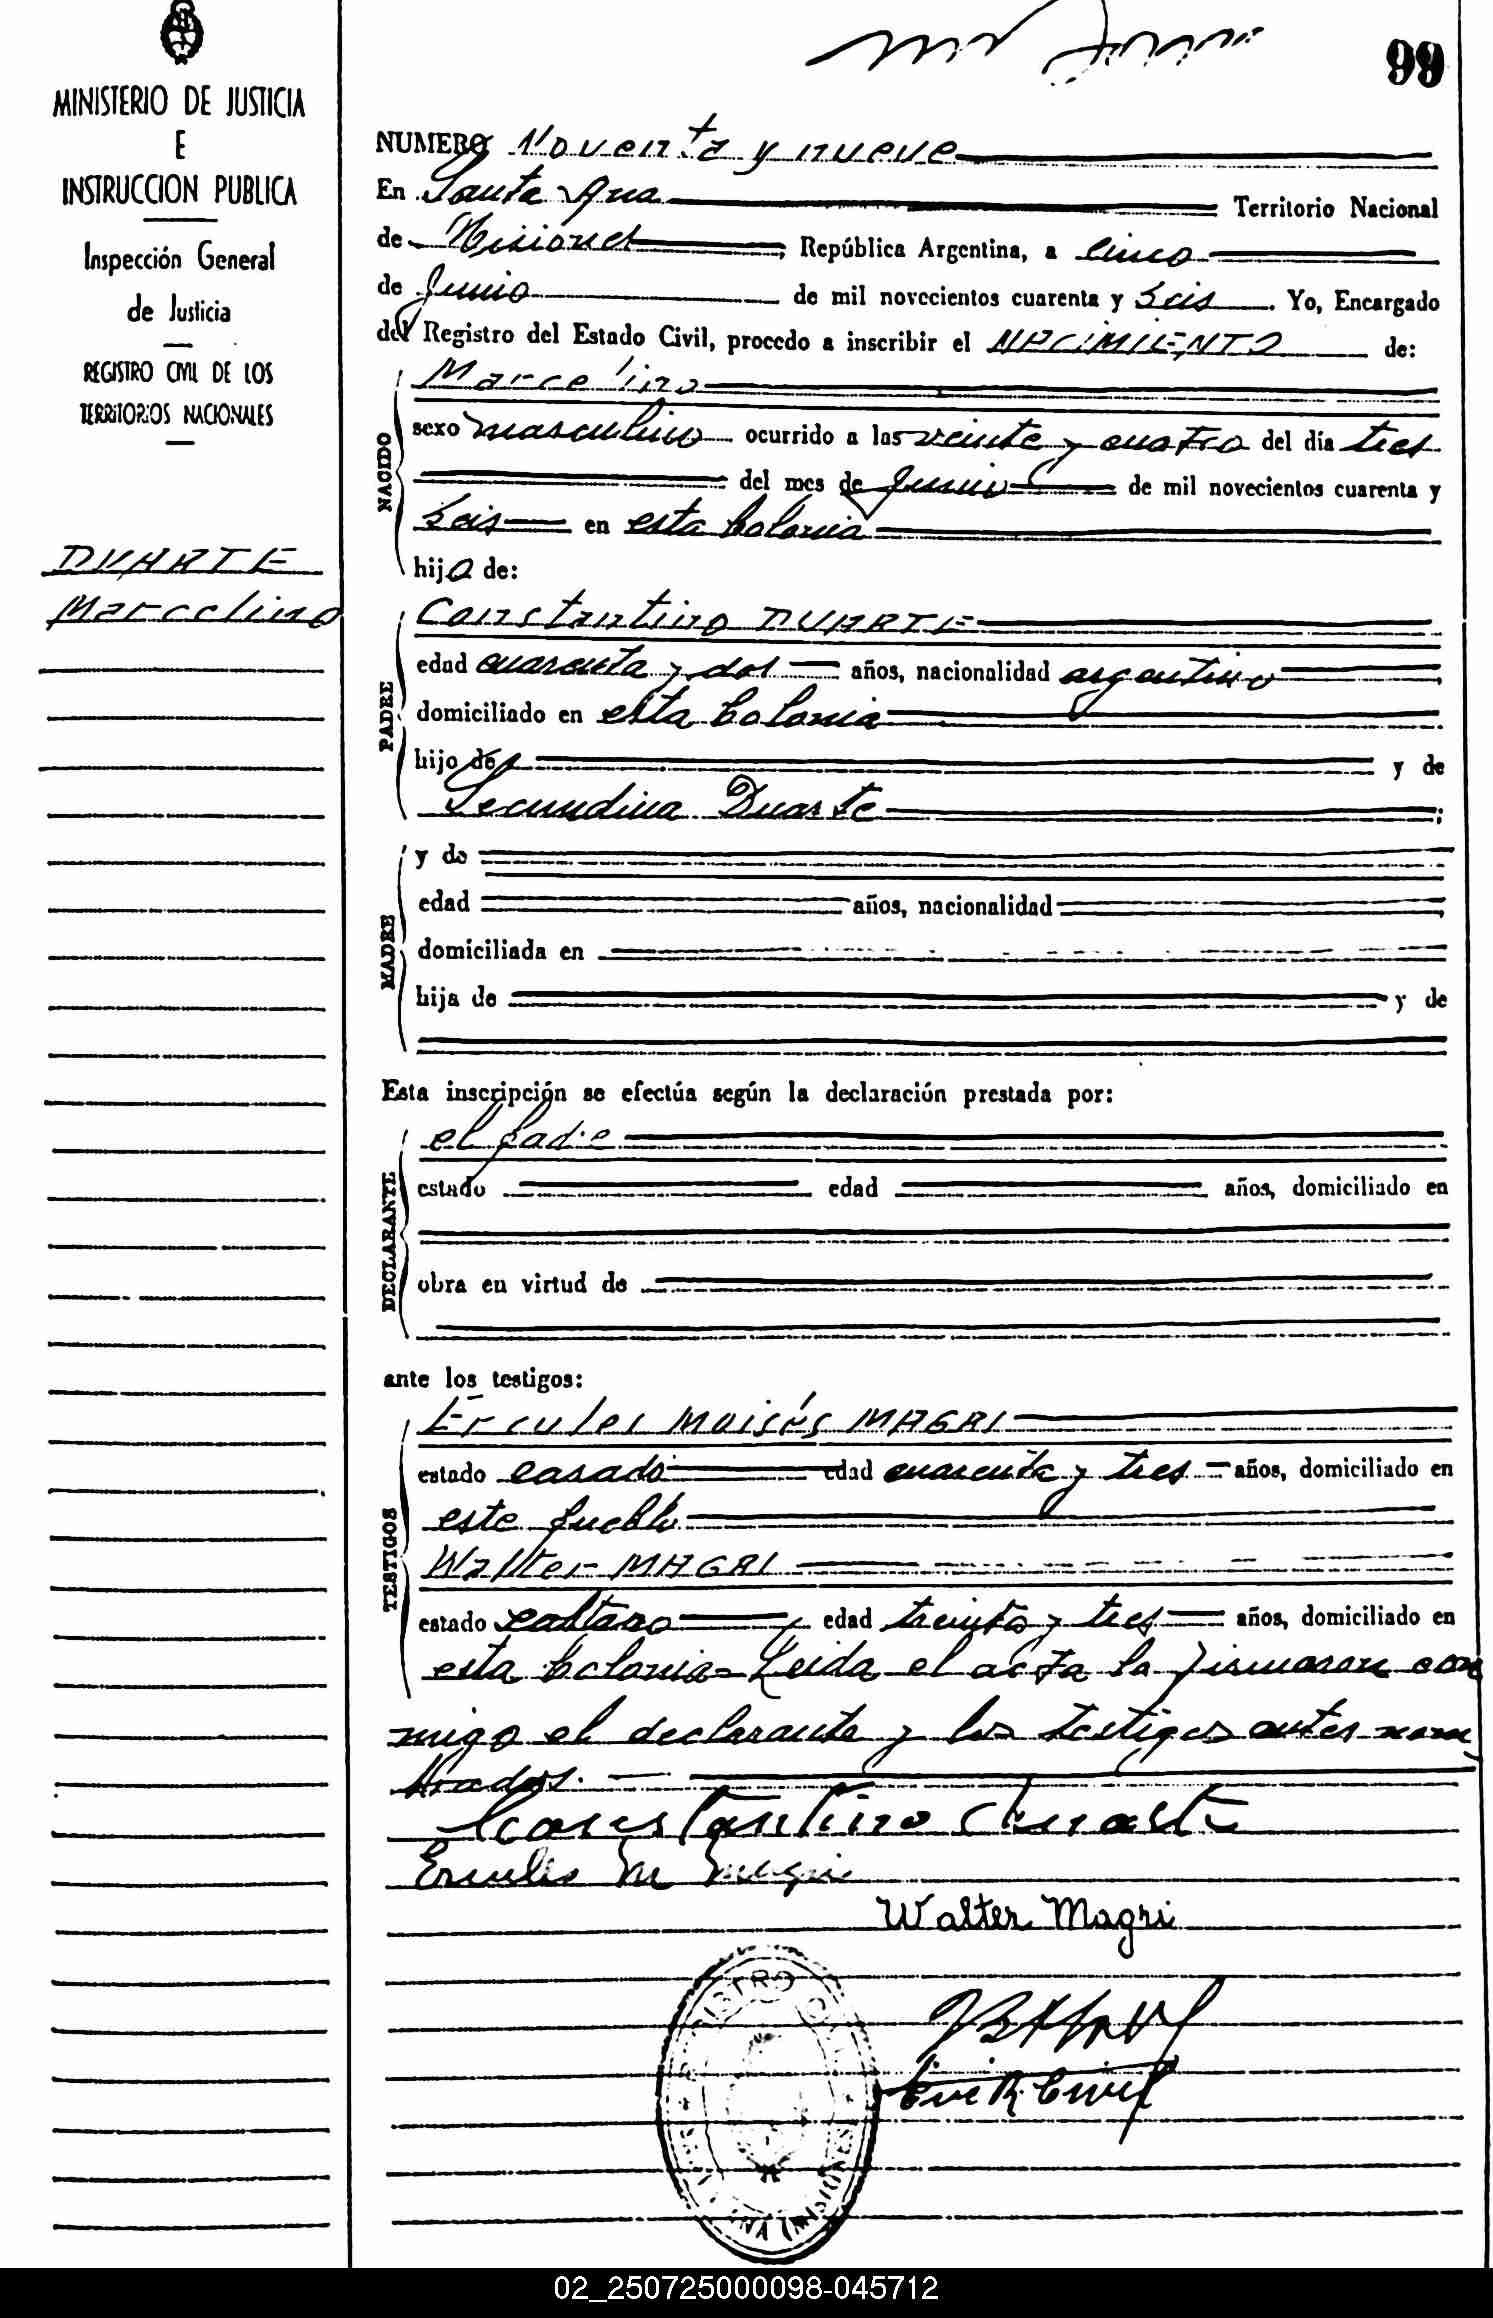 99
MINISTERIO DE JUSTICIA
E
INSTRUCCION PUBLICA
Inspección General
de Justicia
REGISTRO CIVIL DE LOS
TERRITORIOS NACIONALES
DUARTE
Marcelino
NUMERO Noventa y nueve
En Santa Ana Territorio Nacional
de Misiones, República Argentina, a cinco
de Junio de mil novecientos cuarenta y seis. Yo, Encargado
del Registro del Estado Civil, procedo a inscribir el NACIMIENTO de:
NACIDO
Marcelino
sexo masculino ocurrido a las veinte y cuatro del día tres
del mes de Junio de mil novecientos cuarenta y
seis en esta Colonia
hijo de:
PADRE
Constantino DUARTE
edad cuarenta y dos años, nacionalidad argentino
domiciliado en esta Colonia
hijo de y de
Secundina Duarte
MADRE
y de
edad años, nacionalidad
domiciliada en
hija de y de
Esta inscripción se efectúa según la declaración prestada por:
DECLARANTE
el padre
estado edad años, domiciliado en
obra en virtud de
ante los testigos:
TESTIGOS
Ercules Moisés MAGRI
estado casado edad cuarenta y tres años, domiciliado en
este pueblo
Walter MAGRI
estado soltero edad treinta y tres años, domiciliado en
esta Colonia= Leida el acta la firmaron con
migo el declarante y los testigos antes nom
brados.
Constantino Duarte
Ercules M Magri
Walter Magri
Enc R Civil
REGISTRO CIVIL
SANTA ANA (MISIONES)
02_250725000098-045712